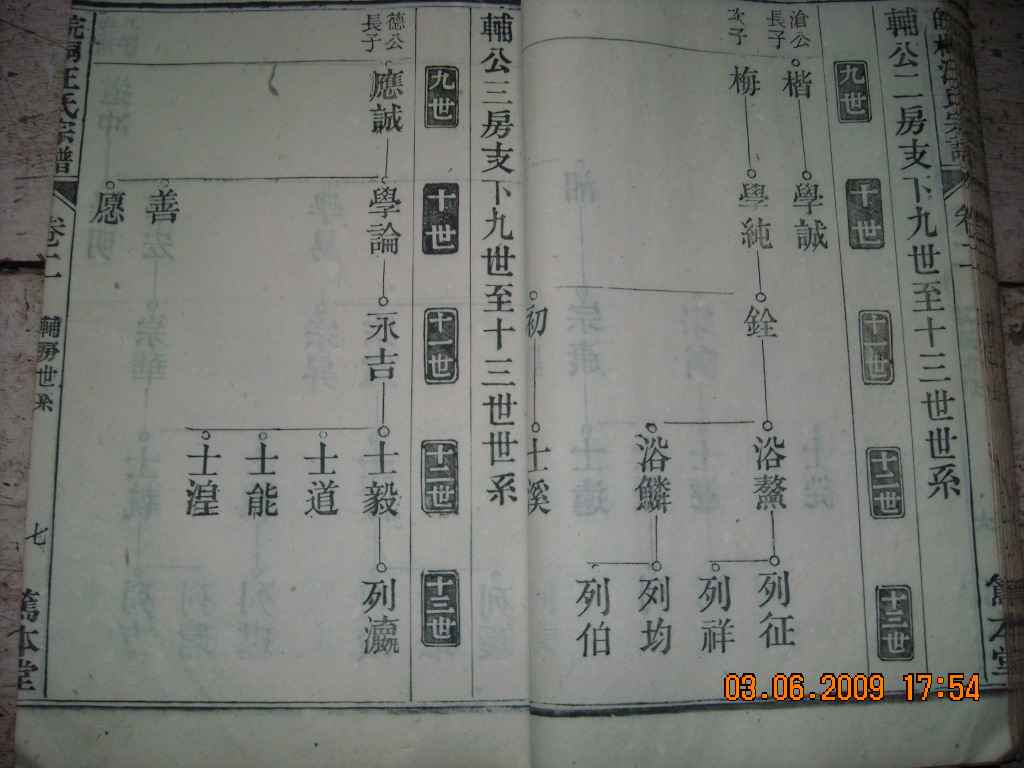 輔公二房支下九世至十三世世系
九世
十世
十一世
十二世
十三世
滄公
長子
楷
學誠
次子
梅
學純
銓
浴鰲
列征
列祥
浴鱗
列均
列伯
初
士溪
輔公三房支下九世至十三世世系
九世
十世
十一世
十二世
十三世
德公
長子
應誠
學論
永吉
士毅
列瀛
士道
士能
士湟
善
愿
皖桐汪氏宗譜
卷二
輔房世系
七
篤本堂
03.06.2009 17:54